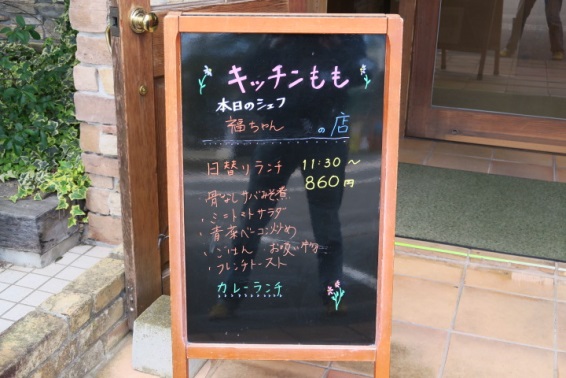 キッチンもも
本日のシェフ
福ちゃん の店
日替りランチ 11:30～
860円
骨なしサバみそ煮
・ミニトマトサラダ
・青菜ベーコン炒め
・ごはん お吸い物
・フレンチトースト
カレーランチ